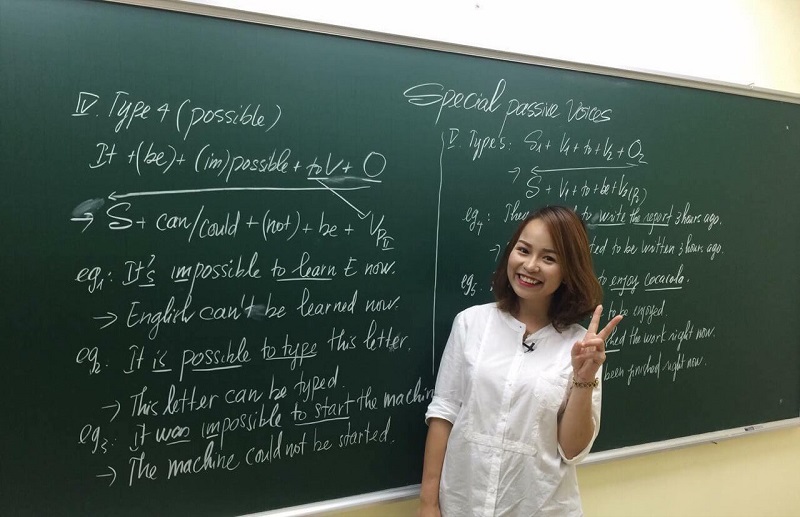 Special passive Voices
IV. Type 4 (possible)
It + (be) + (im)possible + to V + O
→ S + can/could + (not) + be + VpII
eg1: It's impossible to learn E now.
→ English can't be learned now.
eg2: It is possible to type this letter.
→ This letter can be typed.
eg3: It was impossible to start the machine
→ The machine could not be started.
V. Type 5: S1 + V1 + to + V2 + O2
→ S + V1 + to + be + V2(P2)
eg4: to write the report 3 hours ago.
→ ted to be written 3 hours ago.
eg5: to enjoy cocacola.
to be enjoyed.
hed the work right now.
been finished right now.